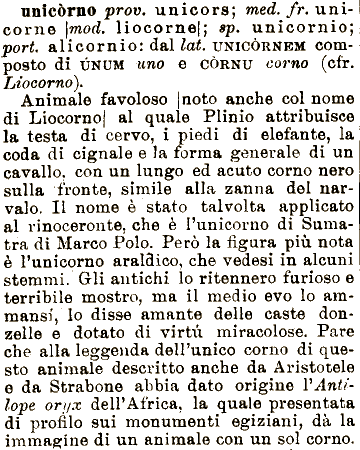 unicòrno prov. unicors; med. fr. uni-
corne |mod. liocorne|; sp. unicornio;
port. alicornio: dal lat. UNICÒRNEM com-
posto di ÚNUM uno e CÒRNU corno (cfr.
Liocorno).
Animale favoloso |noto anche col nome
di Liocorno| al quale Plinio attribuisce
la testa di cervo, i piedi di elefante, la
coda di cignale e la forma generale di un
cavallo, con un lungo ed acuto corno nero
sulla fronte, simile alla zanna del nar-
valo. Il nome è stato talvolta applicato
al rinoceronte, che è l'unicorno di Suma-
tra di Marco Polo. Però la figura più nota
è l'unicorno araldico, che vedesi in alcuni
stemmi. Gli antichi lo ritennero furioso e
terribile mostro, ma il medio evo lo am-
mansí, lo disse amante delle caste don-
zelle e dotato di virtú miracolose. Pare
che alla leggenda dell'unico corno di que-
sto animale descritto anche da Aristotele
e da Strabone abbia dato origine l'Anti-
lope oryx dell'Africa, la quale presentata
di profilo sui monumenti egiziani, dà la
immagine di un animale con un sol corno.